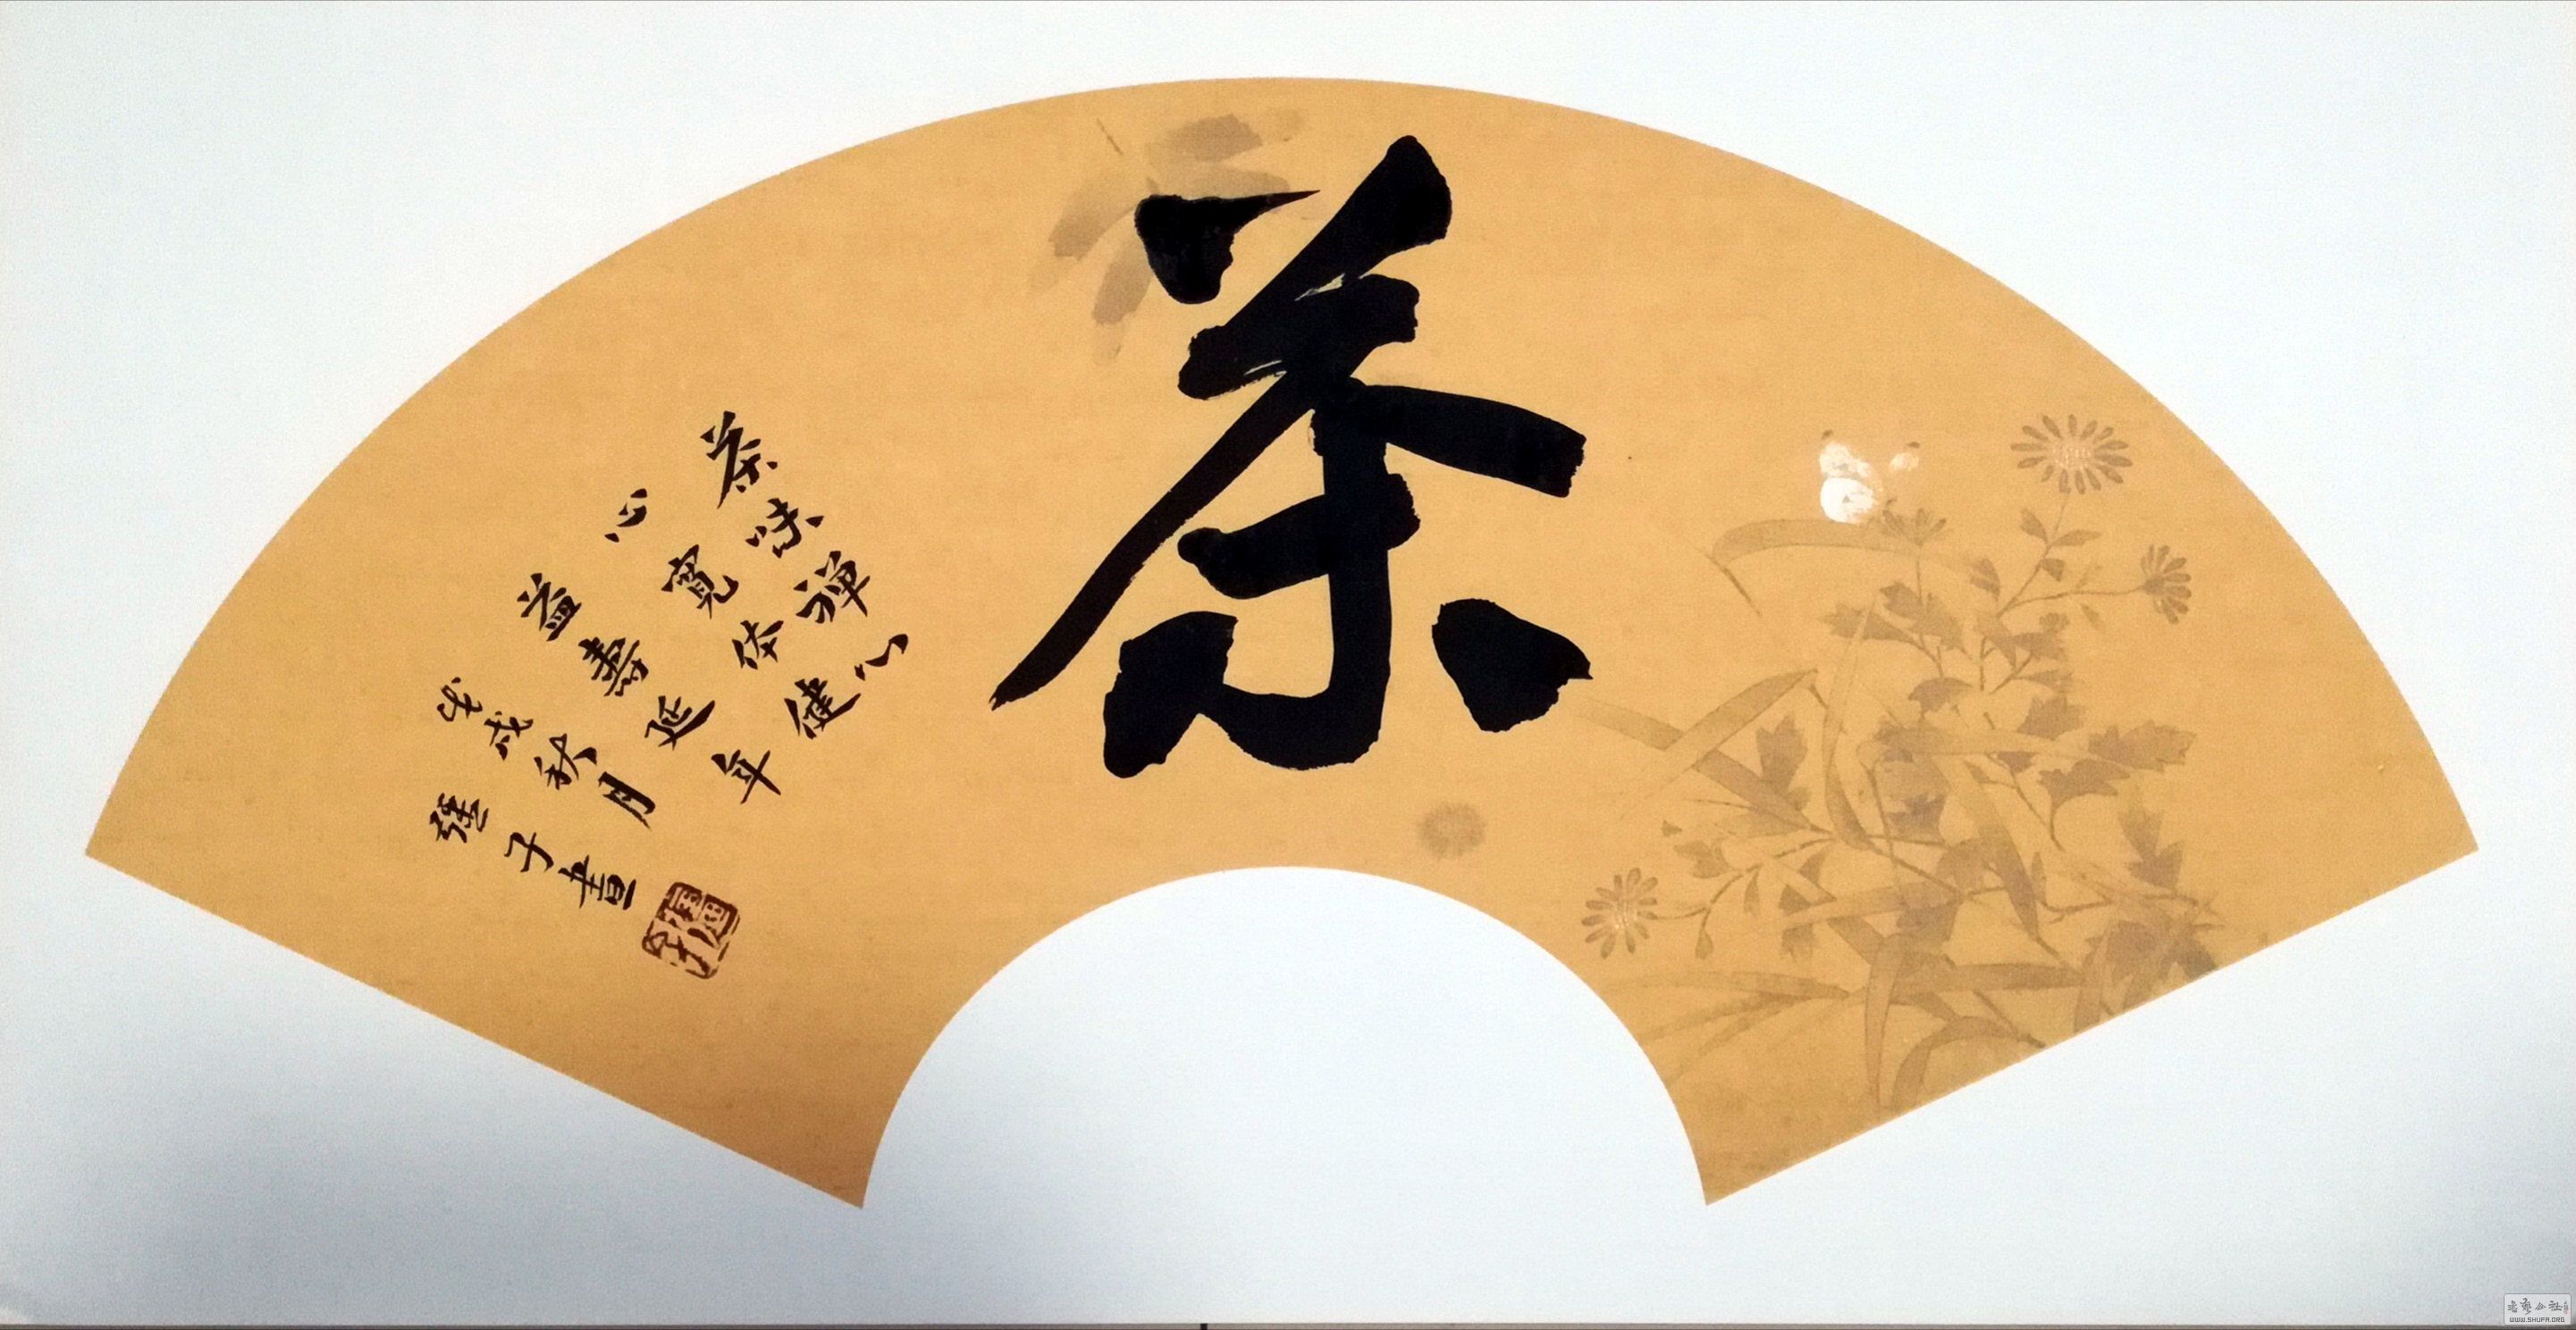 茶
茶味禅心
心寬体健
益壽延年
戊戌秋月
子書
WWW.SHUFA.ORG